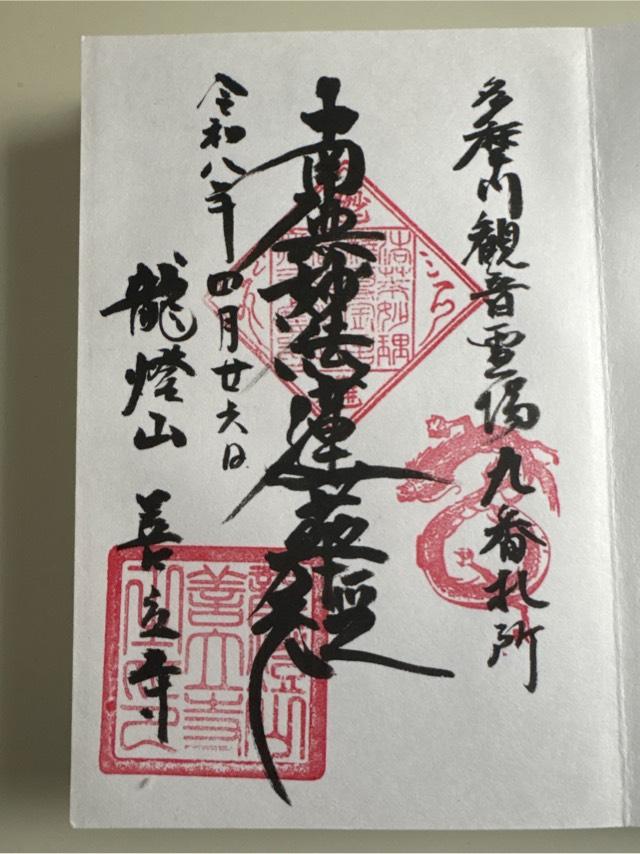 多摩川観音霊場九番札所
南無妙法蓮華経
令和八年四月廿六日
龍燈山 善立寺
善立寺